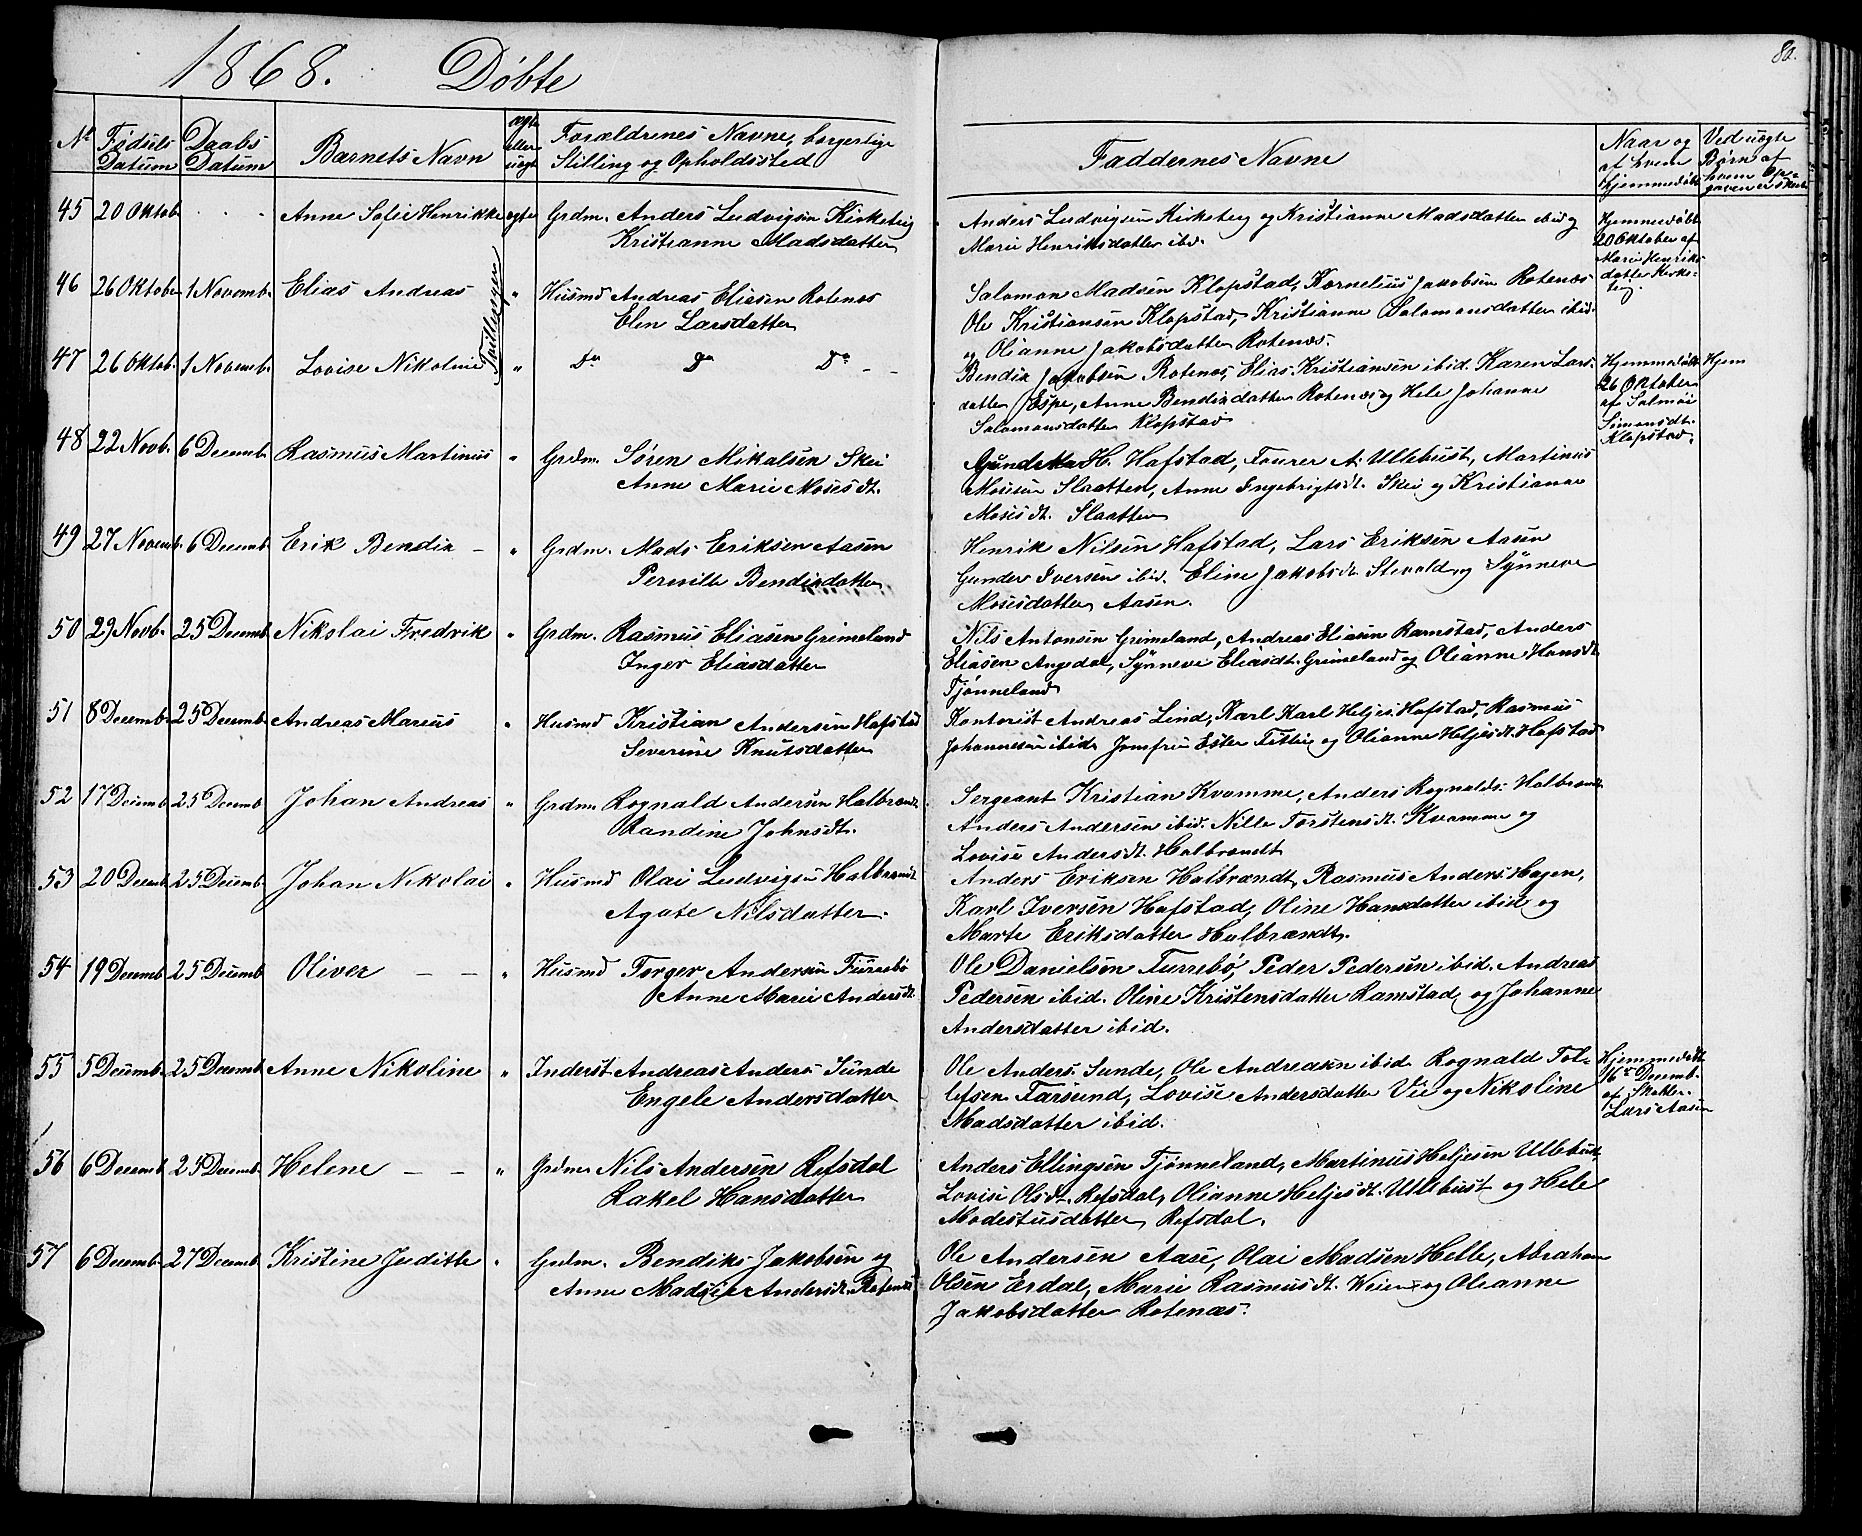 1868. Døbte
80.
No Fødsels Datum Daabs Datum Barnets Navn ægte eller uægte Forældrenes Navne, borgerlige Stilling og Opholdssted
Faddernes Navne Naar og af hvem Hjemmedøbt Ved uægte Børn af hvem Op-
45 20 Oktob. . . Anne Sofie Henrikke ægte Grdm. Anders Ludvigsen Kirketeig
Kristianne Madsdatter
Anders Ludvigsen Kirketeig og Kristianne Madsdatter ibid og
Marie Henriksdatter ibid.
Hjemmedøbt
20 Oktober af
Marie Henriks-
datter Kirke-
teig.
46 26 Oktobe 1 Novemb. Elias Andreas " Husmd Andreas Eliasen Rotenæs
Elen Larsdatter
Tvillinger
Salomon Madsen Klopstad, Kornelius Jakobsen Rotenæs
Ole Kristiansen Klopstad, Kristianne Salomonsdatter ibid.
og Olianne Jakobsdatter Rotenæs.
47 26 Oktob. 1 Novemb. Lovise Nikoline " Do Do Do - -
Bendix Jakobsen Rotenæs, Elias Kristiansen ibid. Karen Lars-
datter Espe, Anne Bendixdatter Rotenæs og Hele Johanne
Salomonsdatter Klopstad
Hjemmedøbt
26 Oktober
af Salmøi
Simonsdt.
Klopstad.
Hjem
48 22 Novb. 6 Decemb. Rasmus Martinus " Grdm. Søren Mikalsen Skei
Anne Marie Mosesdt.
H. Hafstad, Tourer A. Ullebust, Martinus
Mosesen Slaatten, Anne Ingebrigtsdt. Skei og Kristianne
Mosesdt. Slaatten
49 27 Novemb. 6 Decemb. Erik Bendix - " Grdm. Mads Eriksen Aasen
Pernille Bendixdatter
Henrik Nilsen Hafstad, Lars Eriksen Aasen
Gunder Iversen ibid. Eline Jakobsdt. Stevold og Synneve
Mosesdatter Aasen.
50 29 Novb. 25 Decemb. Nikolai Fredrik " Grdm. Rasmus Eliasen Grimeland
Inger Eliasdatter
Nils Antonsen Grimeland, Andreas Eliasen Ramstad, Anders
Eliasen Angedal, Synneve Eliasdt. Grimeland og Olianne Hansdt.
Tjønneland
51 8 Decemb. 25 Decemb. Andreas Marius " Husmd Kristian Andersen Hafstad
Severine Knutsdatter
Kontorist Andreas Lind, Karl Karl Heljes. Hafstad, Rasmus
Johannesen ibid. Jomfru Ester og Olianne Heljesdt. Hafstad
52 17 Decemb. 25 Decemb. Johan Andreas " Grdm. Rognald Andersen Halbrændt
Randine Johnsdt.
Sergeant Kristian Kvamme, Anders Rognalds. Halbrændt
Anders Andersen ibid. Nille Torstensdt. Kvamme og
Lovise Andersdt. Halbrændt
53 20 Decemb. 25 Decemb. Johan Nikolai " Husmd Olai Ludvigsen Halbrændt
Agate Nilsdatter.
Anders Eriksen Halbrændt, Rasmus Anders. Hagen,
Karl Iversen Hafstad, Oline Hansdatter ibid og
Marte Eriksdatter Halbrændt.
54 19 Decemb. 25 Decemb. Oliver - - " Husmd Torger Andersen Furrebø
Anne Marie Andersdt.
Ole Danielsen Furrebø, Peder Pedersen ibid. Andreas
Pedersen ibid. Oline Kristensdatter Ramstad og Johanne
Andersdatter ibid.
55 5 Decemb. 25 Decemb. Anne Nikoline " Inderst Andreas Anders. Sunde
Engele Andersdatter
Ole Anders. Sunde, Ole Andreasen ibid. Rognald Tol-
lefsen Farsund, Lovise Andersdatter Vie og Nikoline
Madsdatter ibid.
Hjemmedøbt
16de Decemb.
af Skoller.
Lars Aasen
56 6 Decemb. 25 Decemb. Helene - - " Grdm Nils Andersen Refsdal
Rakel Hansdatter
Anders Ellingsen Tjønneland, Martinus Heljesen Ullebust,
Lovise Olsdt. Refsdal, Olianne Heljesdt. Ullebust og Hele
Modestusdatter Refsdal.
57 6 Decemb. 27 Decemb. Kristine Juditte " Grdm. Bendiks Jakobsen og
Anne Andersdt. Rotenæs
Ole Andersen Aase, Olai Madsen Helle, Abraham
Olsen Erdal, Marie Rasmusdt. Weien og Olianne
Jakobsdatter Rotenæs.